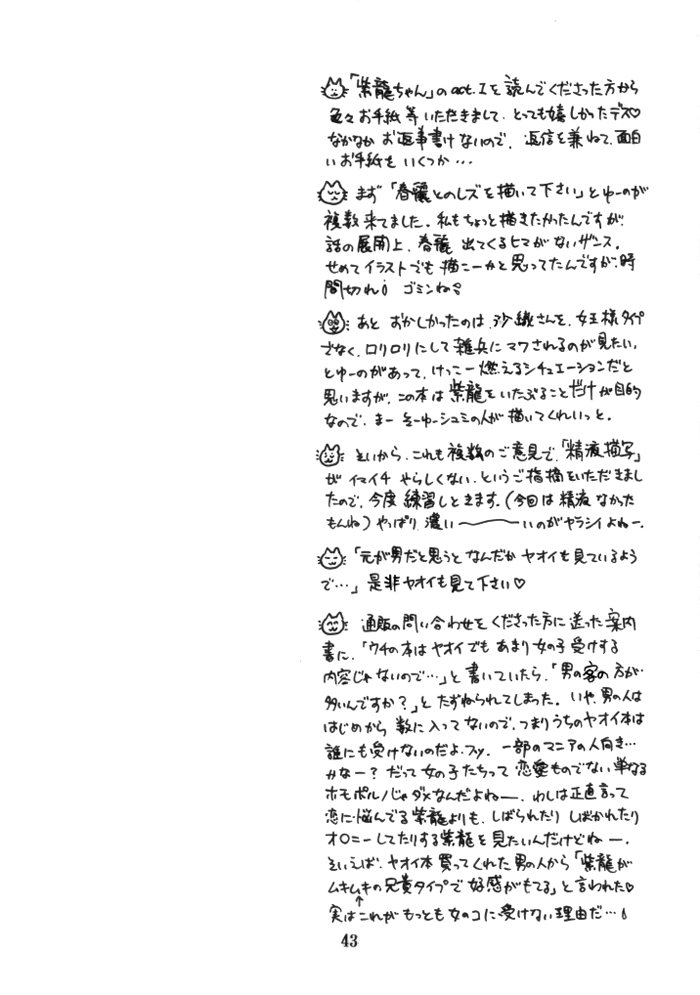 「紫龍ちゃん」のact.Iを読んでくださった方から
色々お手紙等いただきまして、とっても嬉しかったデス♡
なかなかお返事書けないので、返信を兼ねて、面白
いお手紙をいくつか…
まず「春麗とのレズを描いて下さい」とゆーのが
複数来てました。私もちょっと描きたかったんですが、
話の展開上、春麗出てくるヒマがないザンス。
せめてイラストでも描こーかと思ってたんですが、時
間切れ！ゴミンね
あとおかしかったのは、沙織さんを、女王様タイプ
でなく、ロリロリにして雑兵にマワされるのが見たい、
とゆーのがあって、けっこー燃えるシチュエーションだと
思いますが、この本は紫龍をいたぶることだけが目的
なので、まーそーゆーシュミの人が描いてくれいっと。
そいから、これも複数のご意見で、「精液描写」
がイマイチやらしくない、というご指摘をいただきまし
たので、今度練習しときます。（今回は精液なかった
もんね）やっぱり濃い〜いのがヤラシイよねー。
「元が男だと思うとなんだかヤオイも見ているよう
で…」是非ヤオイも見て下さい♡
通販の問い合わせをくださった方に送った案内
書に、「ウチの本はヤオイでもあまり女の子受けする
内容じゃないので…」と書いていたら、「男の客の方が
多いんですか？」とたずねられてしまった。いや、男の人は
はじめから数に入ってないので、つまりうちのヤオイ本は
誰にも受けないのだよ、フッ。一部のマニアの人向き…
かなー？だって女の子たちって恋愛ものでない単なる
ホモポルノじゃダメなんだよねー。わしは正直言って
恋に悩んでる紫龍よりも、しばられたりしばかれたり
オ○ニーしてたりする紫龍を見たいんだけどねー。
そいえば、ヤオイ本買ってくれた男の人から「紫龍が
ムキムキの兄貴タイプで好感がもてる」と言われた♡
↑
実はこれがもっとも女のコに受けない理由だ…
43